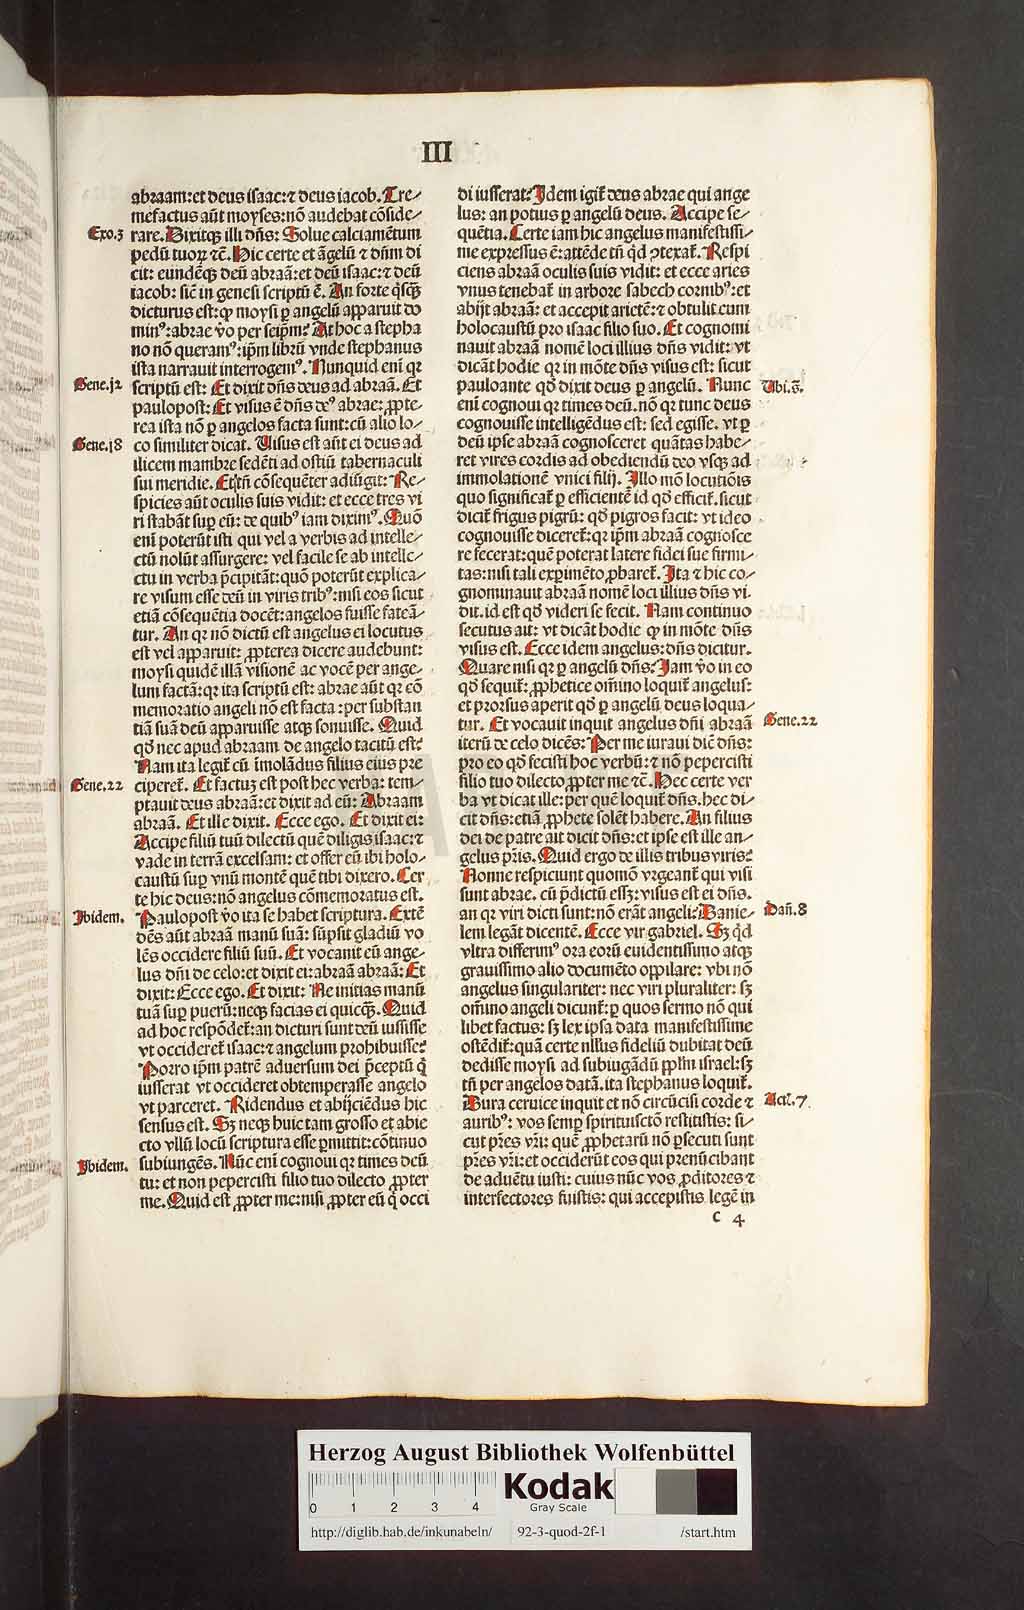 III
abraam: et deus isaac: ⁊ deus iacob. Tre⸗
mefactus aūt moyses: nō audebat cōside⸗
Exo.3 rare. Dixitqꝫ illi dn̄s: Solue calciamētum
pedū tuoꝝ ⁊c̄. Hic certe et āgelū ⁊ dn̄m di
cit: eundēqꝫ deū abraā: et deū isaac: ⁊ deū
iacob: sic̄ in genesi scriptū ē. An forte q̄sqꝫ
dicturus est: ꝙ moysi ꝑ angelū apparuit do
minꝰ: abrae v̄o per seip̄m? At hoc a stepha
no nō queramꝰ: ip̄m librū vnde stephanus
ista narrauit interrogemꝰ. Nunquid eni qꝛ
Gene.j2 scriptū est: Et dixit dn̄s deus ad abraā. Et
paulopost: Et visus ē dn̄s deꝰ abrae: ꝓpte⸗
rea ista nō ꝑ angelos facta sunt: cū alio lo⸗
Gene.j8 co similiter dicat. Uisus est aūt ei deus ad
ilicem mambre sedēti ad ostiū tabernaculi
sui meridie. Et tn̄ cōsequēter adiūgit: Re⸗
spicies aūt oculis suis vidit: et ecce tres vi
ri stabāt suꝑ eū: de quibꝰ iam diximꝰ. Quō
eni poterūt isti qui vel a verbis ad intelle⸗
ctū nolūt assurgere: vel facile se ab intelle⸗
ctu in verba p̄cipitāt: quō poterūt explica⸗
re visum esse deū in viris tribꝰ: nisi eos sicut
etiā cōsequētia docēt: angelos fuisse fateā⸗
tur. An qꝛ nō dictū est angelus ei locutus
est vel apparuit: ꝓpterea dicere audebunt:
moysi quidē illā visionē ac vocē per ange⸗
lum factā: qꝛ ita scriptū est: abrae aūt qꝛ eō
memoratio angeli nō est facta: per substan
tiā suā deū apparuisse atqꝫ sonuisse. Quid
qō nec apud abraam de angelo tacitū est?
Nam ita legit̄ cū īmolādus filius eius pre
Gene.22 ciperet̄. Et factuꝫ est post hec verba: tem⸗
ptauit deus abraā: et dixit ad eū: Abraam
abraā. Et ille dixit. Ecce ego. Et dixit ei:
Accipe filiū tuū dilectū quē diligis isaac: ⁊
vade in terrā excelsam: et offer eū ibi holo⸗
caustū suꝑ vnū montē quē tibi dixero. Cer
te hic deus: nō angelus cōmemoratus est.
Ibidem. Paulopost v̄o ita se habet scriptura. Extē
dēs aūt abraā manū suā: sūpsit gladiū vo
lēs occidere filiū suū. Et vocauit eū ange⸗
lus dn̄i de celo: et dixit ei: abraā abraā: Et
dixit: Ecce ego. Et dixit: Ne inicias manū
tuā suꝑ puerū: neqꝫ facias ei quicqꝫ. Quid
ad hoc respōdet̄: an dicturi sunt deū iussisse
vt occideret̄ isaac: ⁊ angelum prohibuisse?
Porro ip̄m patrē aduersum dei p̄ceptū q̄
iusserat vt occideret obtemperasse angelo
vt parceret. Ridendus et abijciēdus hic
sensus est. Sꝫ neqꝫ huic tam grosso et abie
cto vllū locū scriptura esse ꝑmittit: cōtinuo
Ibidem. subiungēs. Nūc eni cognoui qꝛ times deū
tu: et non pepercisti filio tuo dilecto ꝓpter
me. Quid est ꝓpter me: nisi ꝓpter eū q̄ occi
di iusserat? Idem igit̄ deus abrae qui ange
lus: an potius ꝑ angelū deus. Accipe se⸗
quētia. Certe iam hic angelus manifestissi⸗
me expressus ē: attēde tn̄ qd̄ ꝯtexat̄. Respi
ciens abraā oculis suis vidit: et ecce aries
vnus tenebat̄ in arbore sabech cornibꝰ: et
abijt abraā: et accepit arietē: ⁊ obtulit eum
holocaustū pro isaac filio suo. Et cognomi
nauit abraā nomē loci illius dn̄s vidit: vt
dicāt hodie qꝛ in mōte dn̄s visus est: sicut
pauloante qō dixit deus ꝑ angelū. Nunc Ubi.s̄.
eni cognoui qꝛ times deū. nō qꝛ tunc deus
cognouisse intelligēdus est: sed egisse. vt ꝑ
deū ipse abraā cognosceret quātas habe⸗
ret vires cordis ad obediendū deo vsqꝫ ad
immolationē vnici filij. Illo mō locutiōis
quo significat̄ ꝑ efficientē id qō efficit̄. sicut
dicit̄ frigus pigrū: qō pigros facit: vt ideo
cognouisse diceret̄: qꝛ ip̄m abraā cognosce
re fecerat: quē poterat latere fidei sue firmi⸗
tas: nisi tali exꝑimēto ꝓbaret̄. Ita ⁊ hic co⸗
gnominauit abraā nomē loci illius dn̄s vi⸗
dit. id est qō videri se fecit. Nam continuo
secutus ait: vt dicāt hodie ꝙ in mōte dn̄s
visus est. Ecce idem angelus: dn̄s dicitur.
Quare nisi qꝛ ꝑ angelū dn̄s? Jam v̄o in eo
qō sequit̄: ꝓphetice om̄ino loquit̄ angelus:
et prorsus aperit qō ꝑ angelū deus loqua⸗
tur. Et vocauit inquit angelus dn̄i abraā Gene.22
iterū de celo dicēs: Per me iuraui dic̄ dn̄s:
pro eo qō fecisti hoc verbū: ⁊ nō pepercisti
filio tuo dilecto ꝓpter me ⁊c̄. Hec certe ver
ba vt dicat ille: per quē loquit̄ dn̄s. hec di⸗
cit dn̄s: etiā ꝓphete solēt habere. An filius
dei de patre ait dicit dn̄s: et ipse est ille an⸗
gelus pr̄is. Quid ergo de illis tribus viris?
Nonne respiciunt quomō vrgeant̄ qui visi
sunt abrae. cū p̄dictū esſꝫ: visus est ei dn̄s.
an qꝛ viri dicti sunt: nō erāt angeli? Danie⸗ Dan̄.8
lem legāt dicentē. Ecce vir gabriel. Sꝫ qd̄
vltra differimꝰ ora eorū euidentissimo atqꝫ
grauissimo alio documēto oppilare: vbi nō
angelus singulariter: nec viri pluraliter: sꝫ
om̄ino angeli dicunt̄: ꝑ quos sermo nō qui
libet factus: sꝫ lex ipsa data manifestissime
ostēdit̄: quā certe nllus fideliū dubitat deū
dedisse moysi ad subiugādū pp̄lm israel: sꝫ
tn̄ per angelos datā. ita stephanus loquit̄.
Dura ceruice inquit et nō circūcisi corde ⁊ Act̄.7.
auribꝰ: vos semꝑ spirituisctō restitistis: si⸗
cut pr̄es vr̄i: quē ꝓphetarū nō ꝑsecuti sunt
pr̄es vr̄i: et occiderūt eos qui prenūcibant
de aduētu iusti: cuius nūc vos ꝓditores ⁊
interfectores fuistis: qui accepistis legē in
c 4
Herzog August Bibliothek Wolfenbüttel
0 1 2 3 4
Kodak
Gray Scale
http://diglib.hab.de/inkunabeln/ 92-3-quod-2f-1 /start.htm